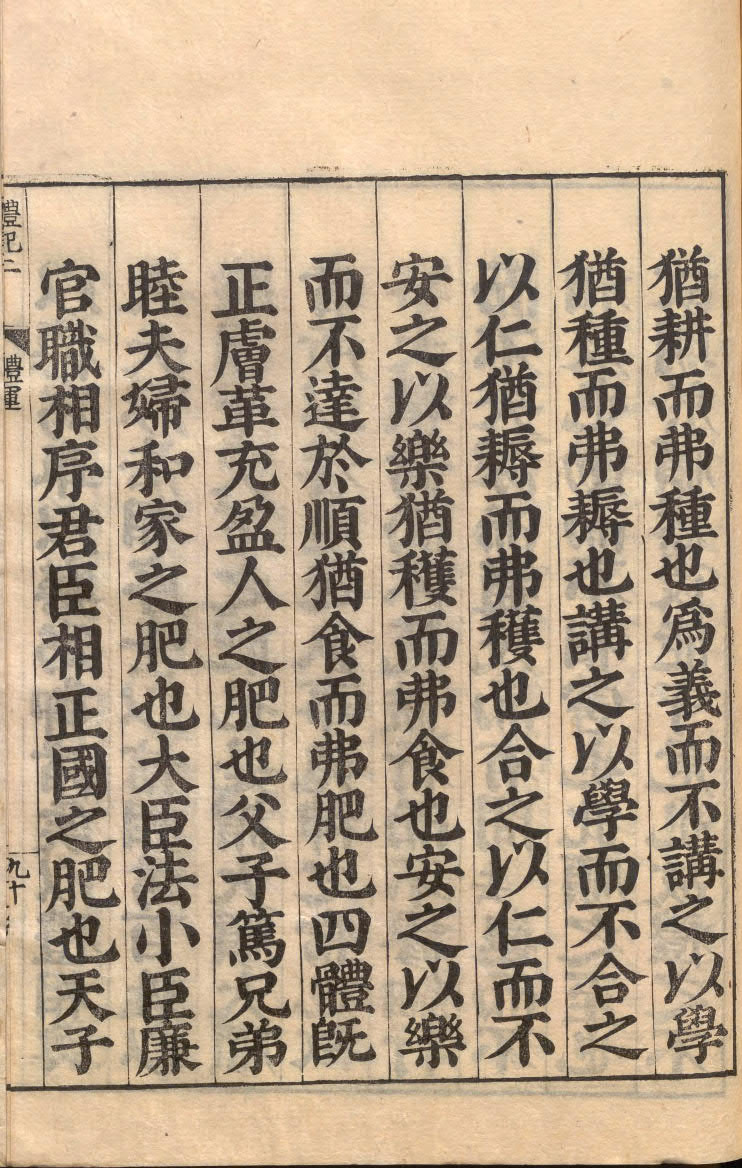 猶耕而弗種也爲義而不講之以學
猶種而弗耨也講之以學而不合之
以仁猶耨而弗穫也合之以仁而不
安之以樂猶穫而弗食也安之以樂
而不達於順猶食而弗肥也四體旣
正膚革充盈人之肥也父子篤兄弟
睦夫婦和家之肥也大臣法小臣廉
官職相序君臣相正國之肥也天子
禮記二
禮運
九十